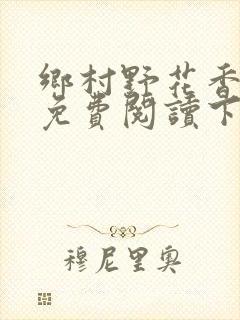 鄉村野花香
免費閱讀下
穆尼里奧